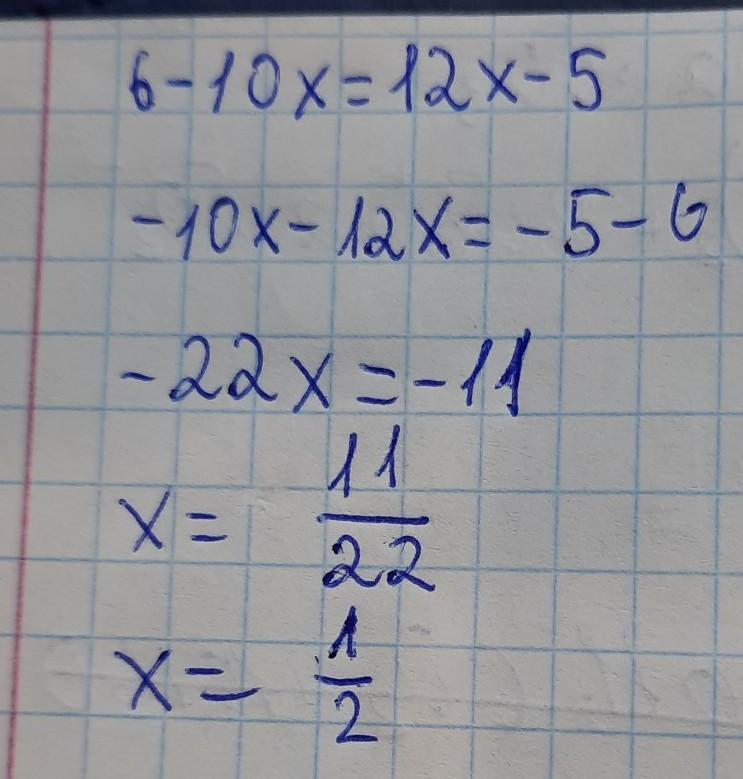 6-10x=12x-5
-10x-12x=-5-6
-22x=-11
x= 11/22
x= 1/2